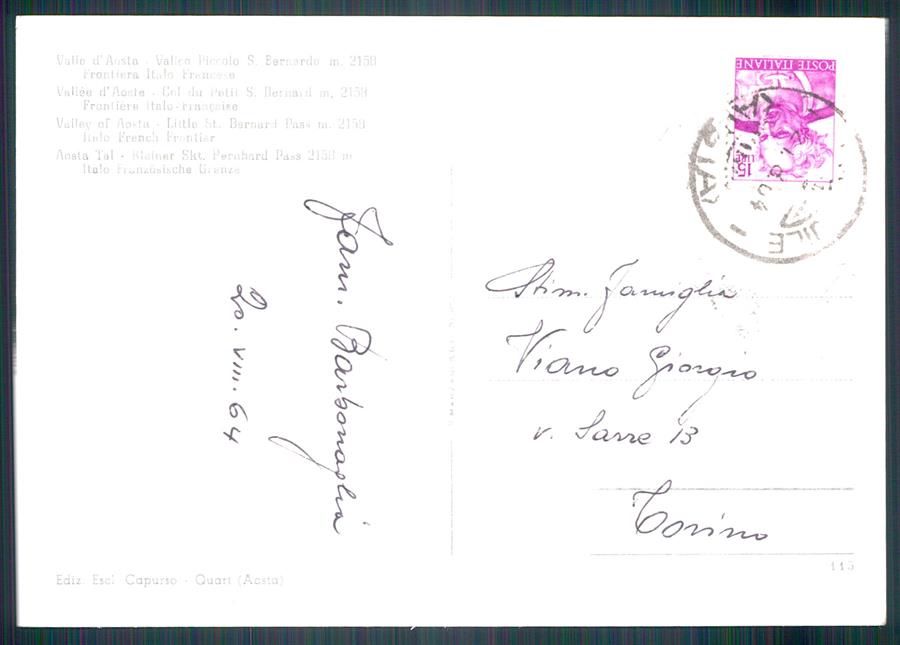 Valle d'Aosta - Valico Piccolo S. Bernardo m. 2158
Frontiera Italo Francese
Vallée d'Aoste - Col du Petit S. Bernard m. 2158
Frontière Italo-Française
Valley of Aosta - Little St. Bernard Pass m. 2158
Italo French Frontier
Aosta Tal - Kleiner Skt. Bernhard Pass 2158 m
Italo Französische Grenze
Fam. Barbonaglia
20. VIII. 64
POSTE ITALIANE
15 LIRE
Stim. Famiglia
Viano Giorgio
v. Sarre 13
Torino
Ediz. Escl. Capurso - Quart (Aosta)
115